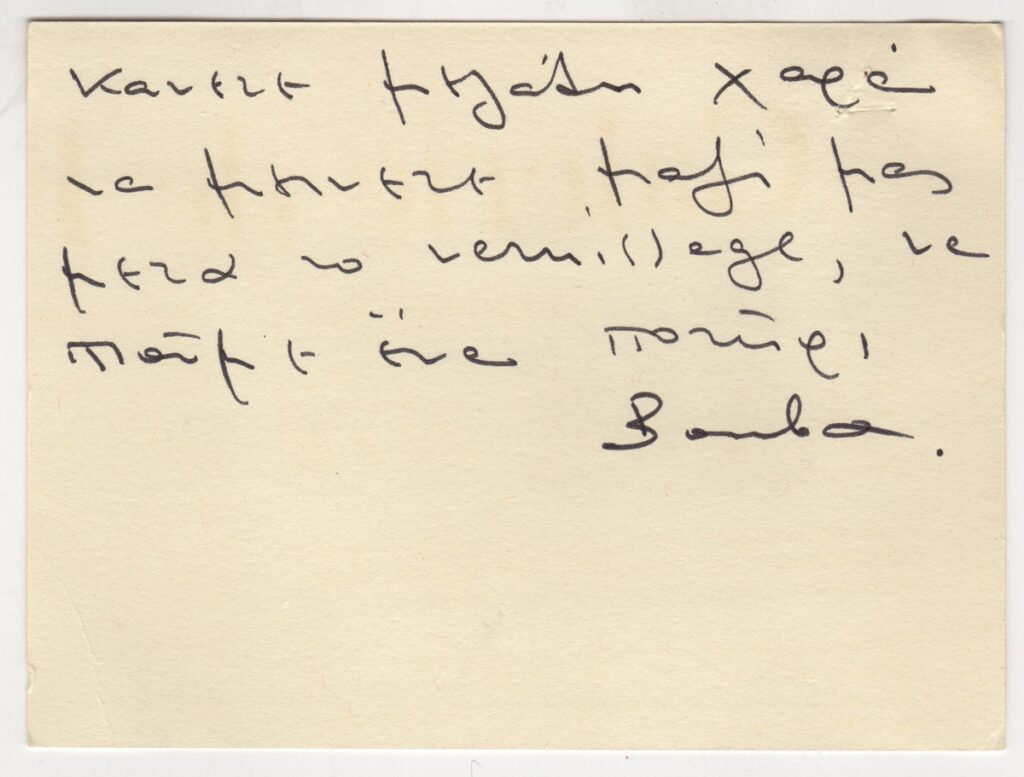 κανετε μεγάλη χαρά
να μεινετε μαζί μας
μετά το vernissage, να
πιούμε ένα ποτήρι
Bouba.